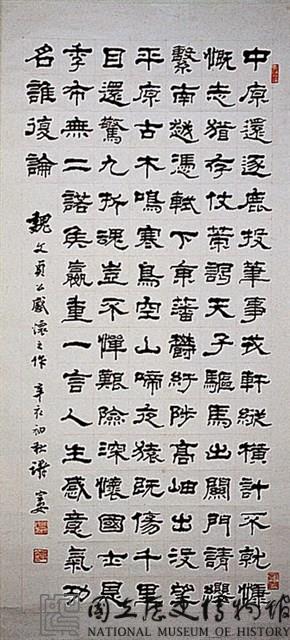 中原還逐鹿投筆事戎軒縱橫計不就慷
慨志猶存仗策謁天子驅馬出關門請纓
繫南越憑軾下東藩鬱紆陟高岫出沒望
平原古木鳴寒鳥空山啼夜猿既傷千里
目還驚九折魂豈不憚艱險深懷國士恩
季布無二諾侯嬴重一言人生感意氣功
名誰復論
魏文貞公感懷之作 辛亥初秋
國立歷史博物館
NATIONAL MUSEUM OF HISTORY